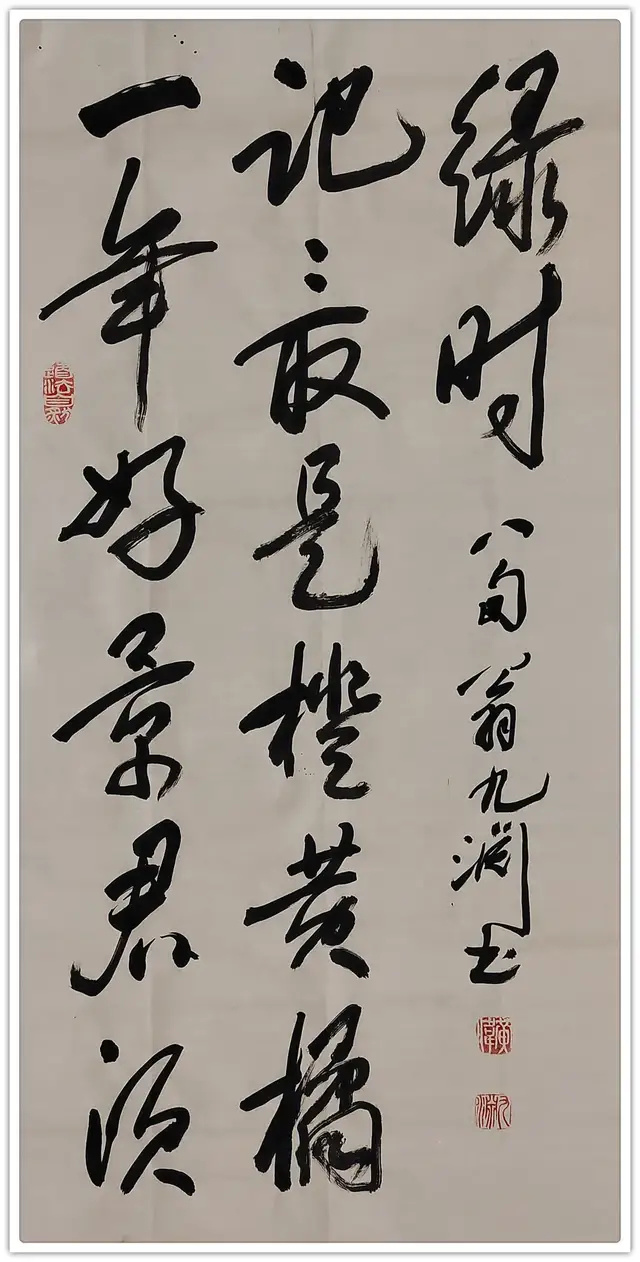 一年好景君须
记最是橙黄橘
绿时
八旬翁九渊书
九渊